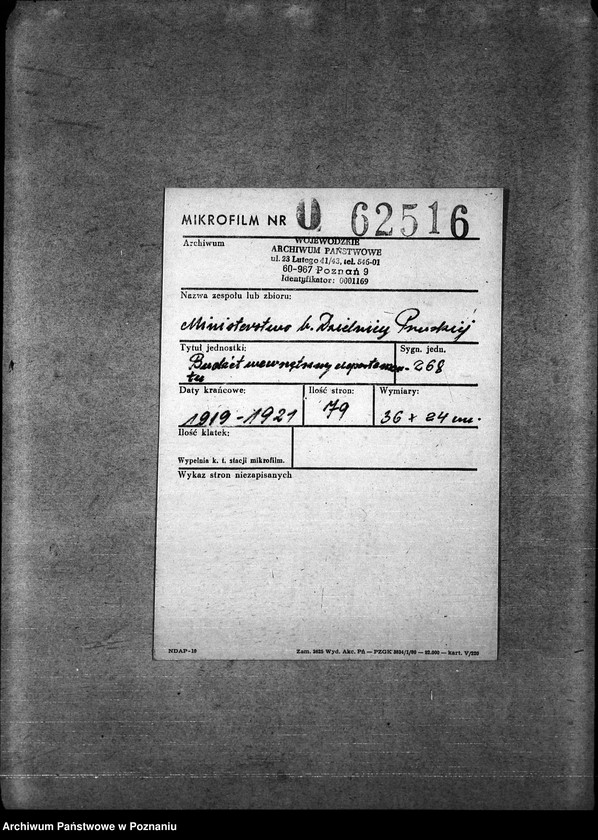 MIKROFILM NR 0 62516
Archiwum
WOJEWÓDZKIE
ARCHIWUM PAŃSTWOWE
ul. 23 Lutego 41/43, tel. 546-01
60-967 Poznań 9
Identyfikator: 0001169
Nazwa zespołu lub zbioru:
Ministerstwo b. Dzielnicy Pruskiej
Tytuł jednostki:
Sygn. jedn.
Budżet wewnętrzny departamen-
tu
268
Daty krańcowe:
Ilość stron:
Wymiary:
1919-1921
79
36 x 24 cm.
Ilość klatek:
Wypełnia k. t. stacji mikrofilm.
Wykaz stron niezapisanych
NDAP-10
Zam. Wyd. Akc. PA — PZGK — kart. V/
Archiwum Państwowe w Poznaniu